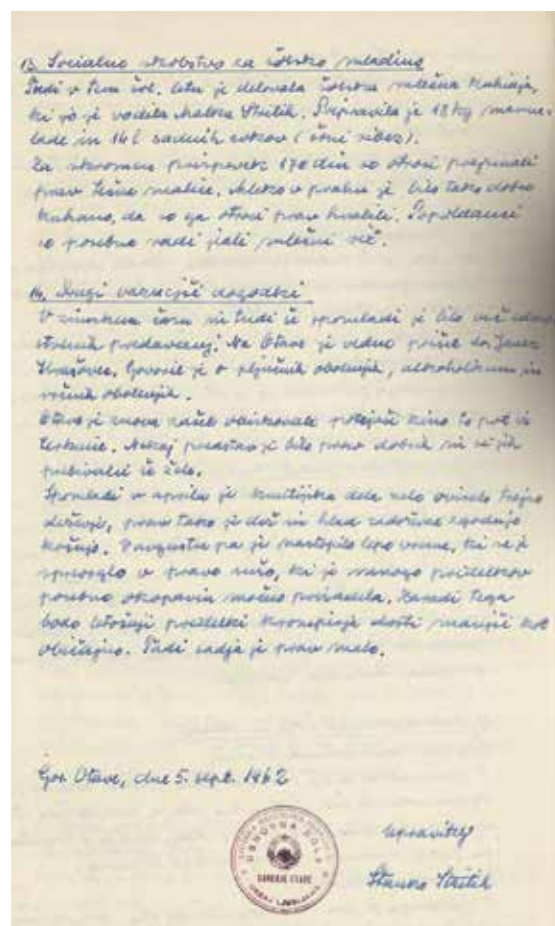 13. Socialno skrbstvo za šolsko mladino
Tudi v tem šol. letu je delovala šolska mlečna kuhinja,
ki jo je vodila Malka Stritih. Pripravila je 18 kg marme-
lade in 14 l sadnih sokov (črni ribez).
Za skromen prispevek 170 din so otroci prejemali
prav tečne malice. Mleko v prahu je bilo tako dobro
kuhano, da so ga otroci prav hvalili. Popoldanci
so posebno radi jedli mlečni riž.
14. Drugi važnejši dogodki
V zimskem času in tudi še spomladi je bilo več zdrav-
stvenih predavanj. Na Otave je vedno prišel dr. Janez
Hrašovec. Govoril je o pljučnih obolenjih, alkoholizmu in
obolenjih.
Otave je znova začel obiskovati potujoči kino to pot iz
Nekaj predstav je bilo prav dobrih in si jih
prebivalci še žele.
Spomladi v aprilu je kmetijska dela zelo oviralo trajno
deževje, prav tako je dež in hlad zadržal zgodnjo
košnjo. V avgustu pa je nastopilo lepo vreme, ki se je
spreverglo v pravo sušo, ki je mnogo pridelkov
posebno okopavin močno prizadela. Zaradi tega
bodo letošnji pridelki krompirja dosti manjši kot
običajno. Tudi sadja je prav malo.
Gor. Otave, dne 5. sept. 1962
OSNOVNA ŠOLA
GORENJE OTAVE
OKRAJ LJUBLJANA
Upravitelj
Stanko Stritih